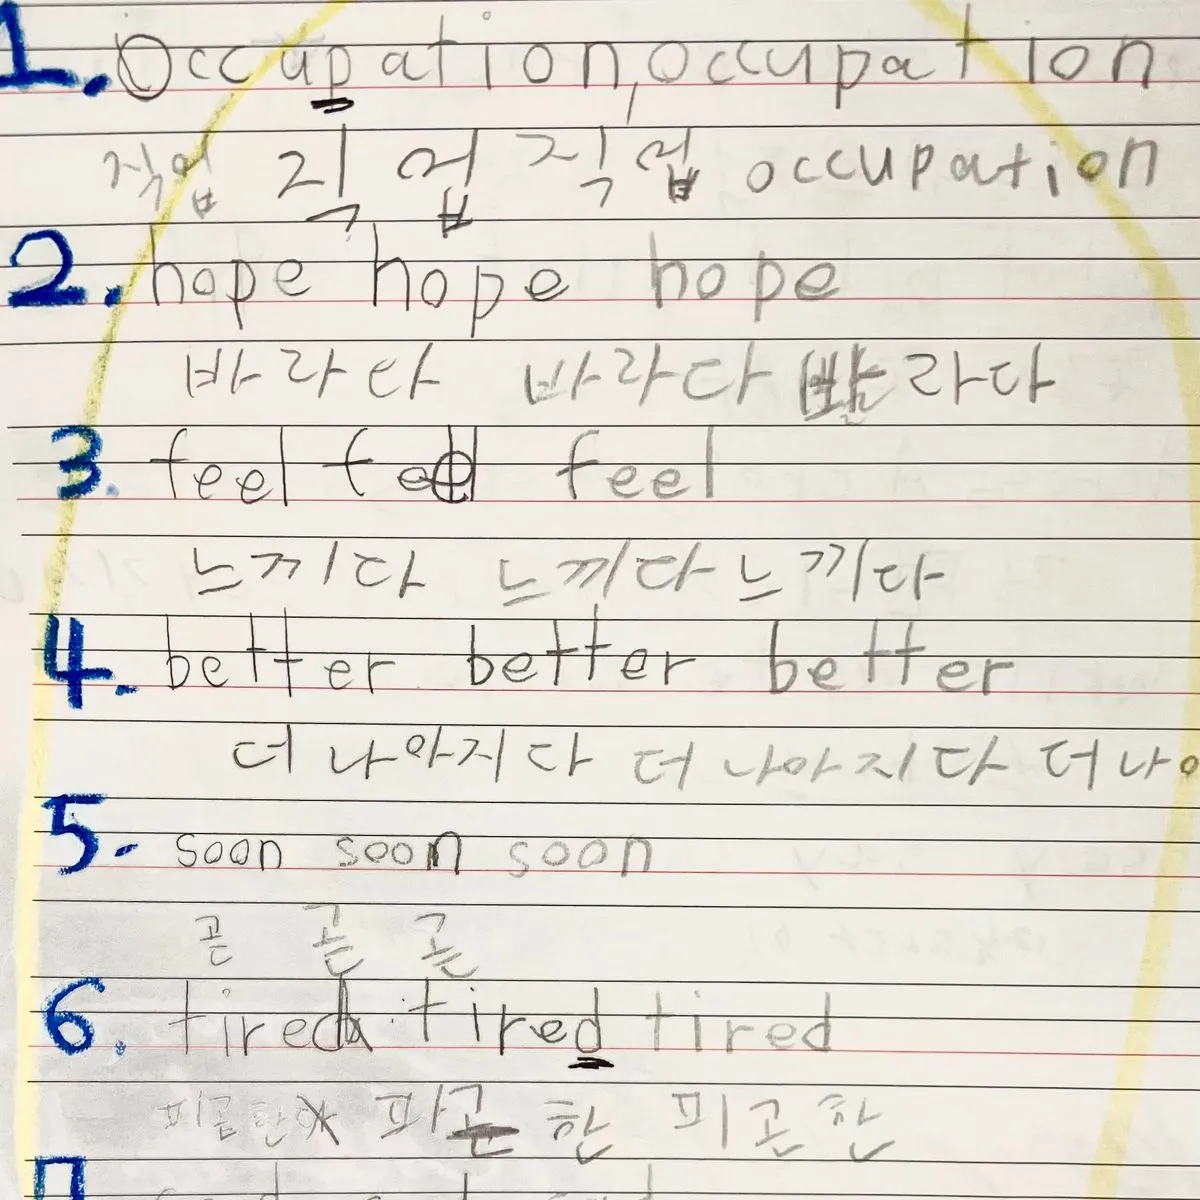 1. Occupation, occupation
직업 직업 직업 occupation
2. hope hope hope
바라다 바라다 바라다
3. feel feel feel
느끼다 느끼다 느끼다
4. better better better
더 나아지다 더 나아지다 더 나아
5. soon soon soon
곧 곧 곧
6. tired tired tired
피곤한 피곤한 피곤한
7.